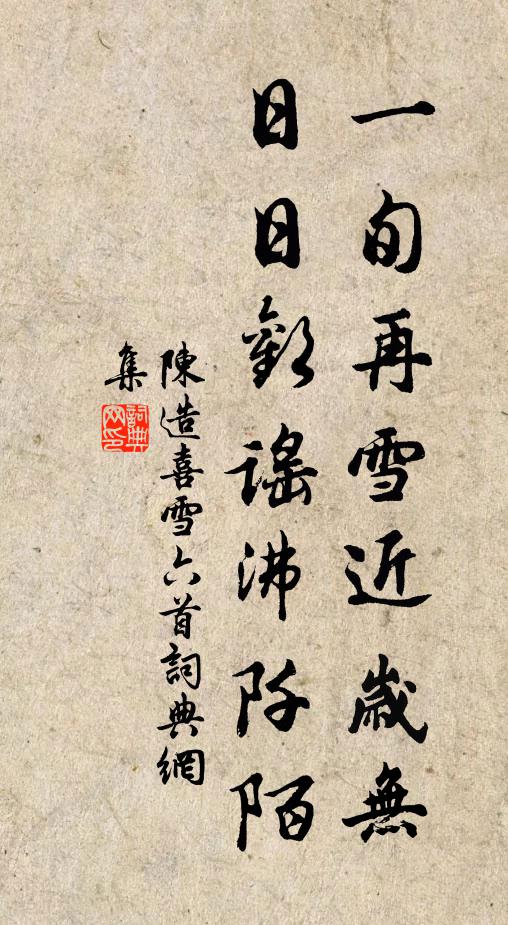 一旬再雪近歲無
日日歡謠沸阡陌
陳造喜雪六首詞典網
集
詞典
网印